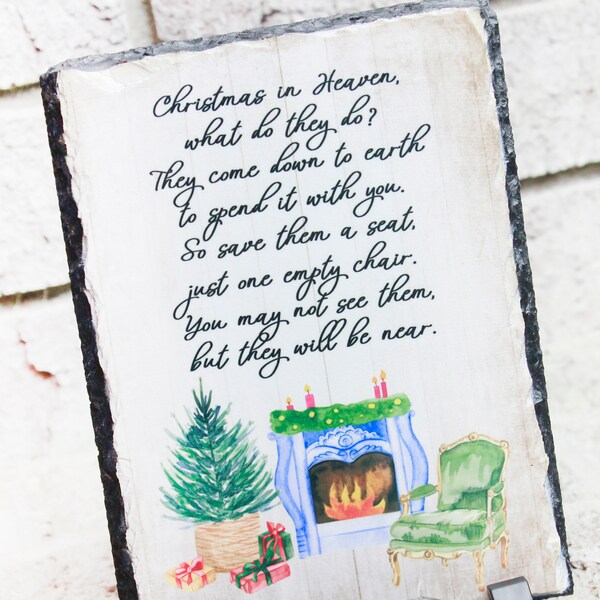 Christmas in Heaven,
what do they do?
They come down to earth
to spend it with you.
So save them a seat,
just one empty chair.
You may not see them,
but they will be near.